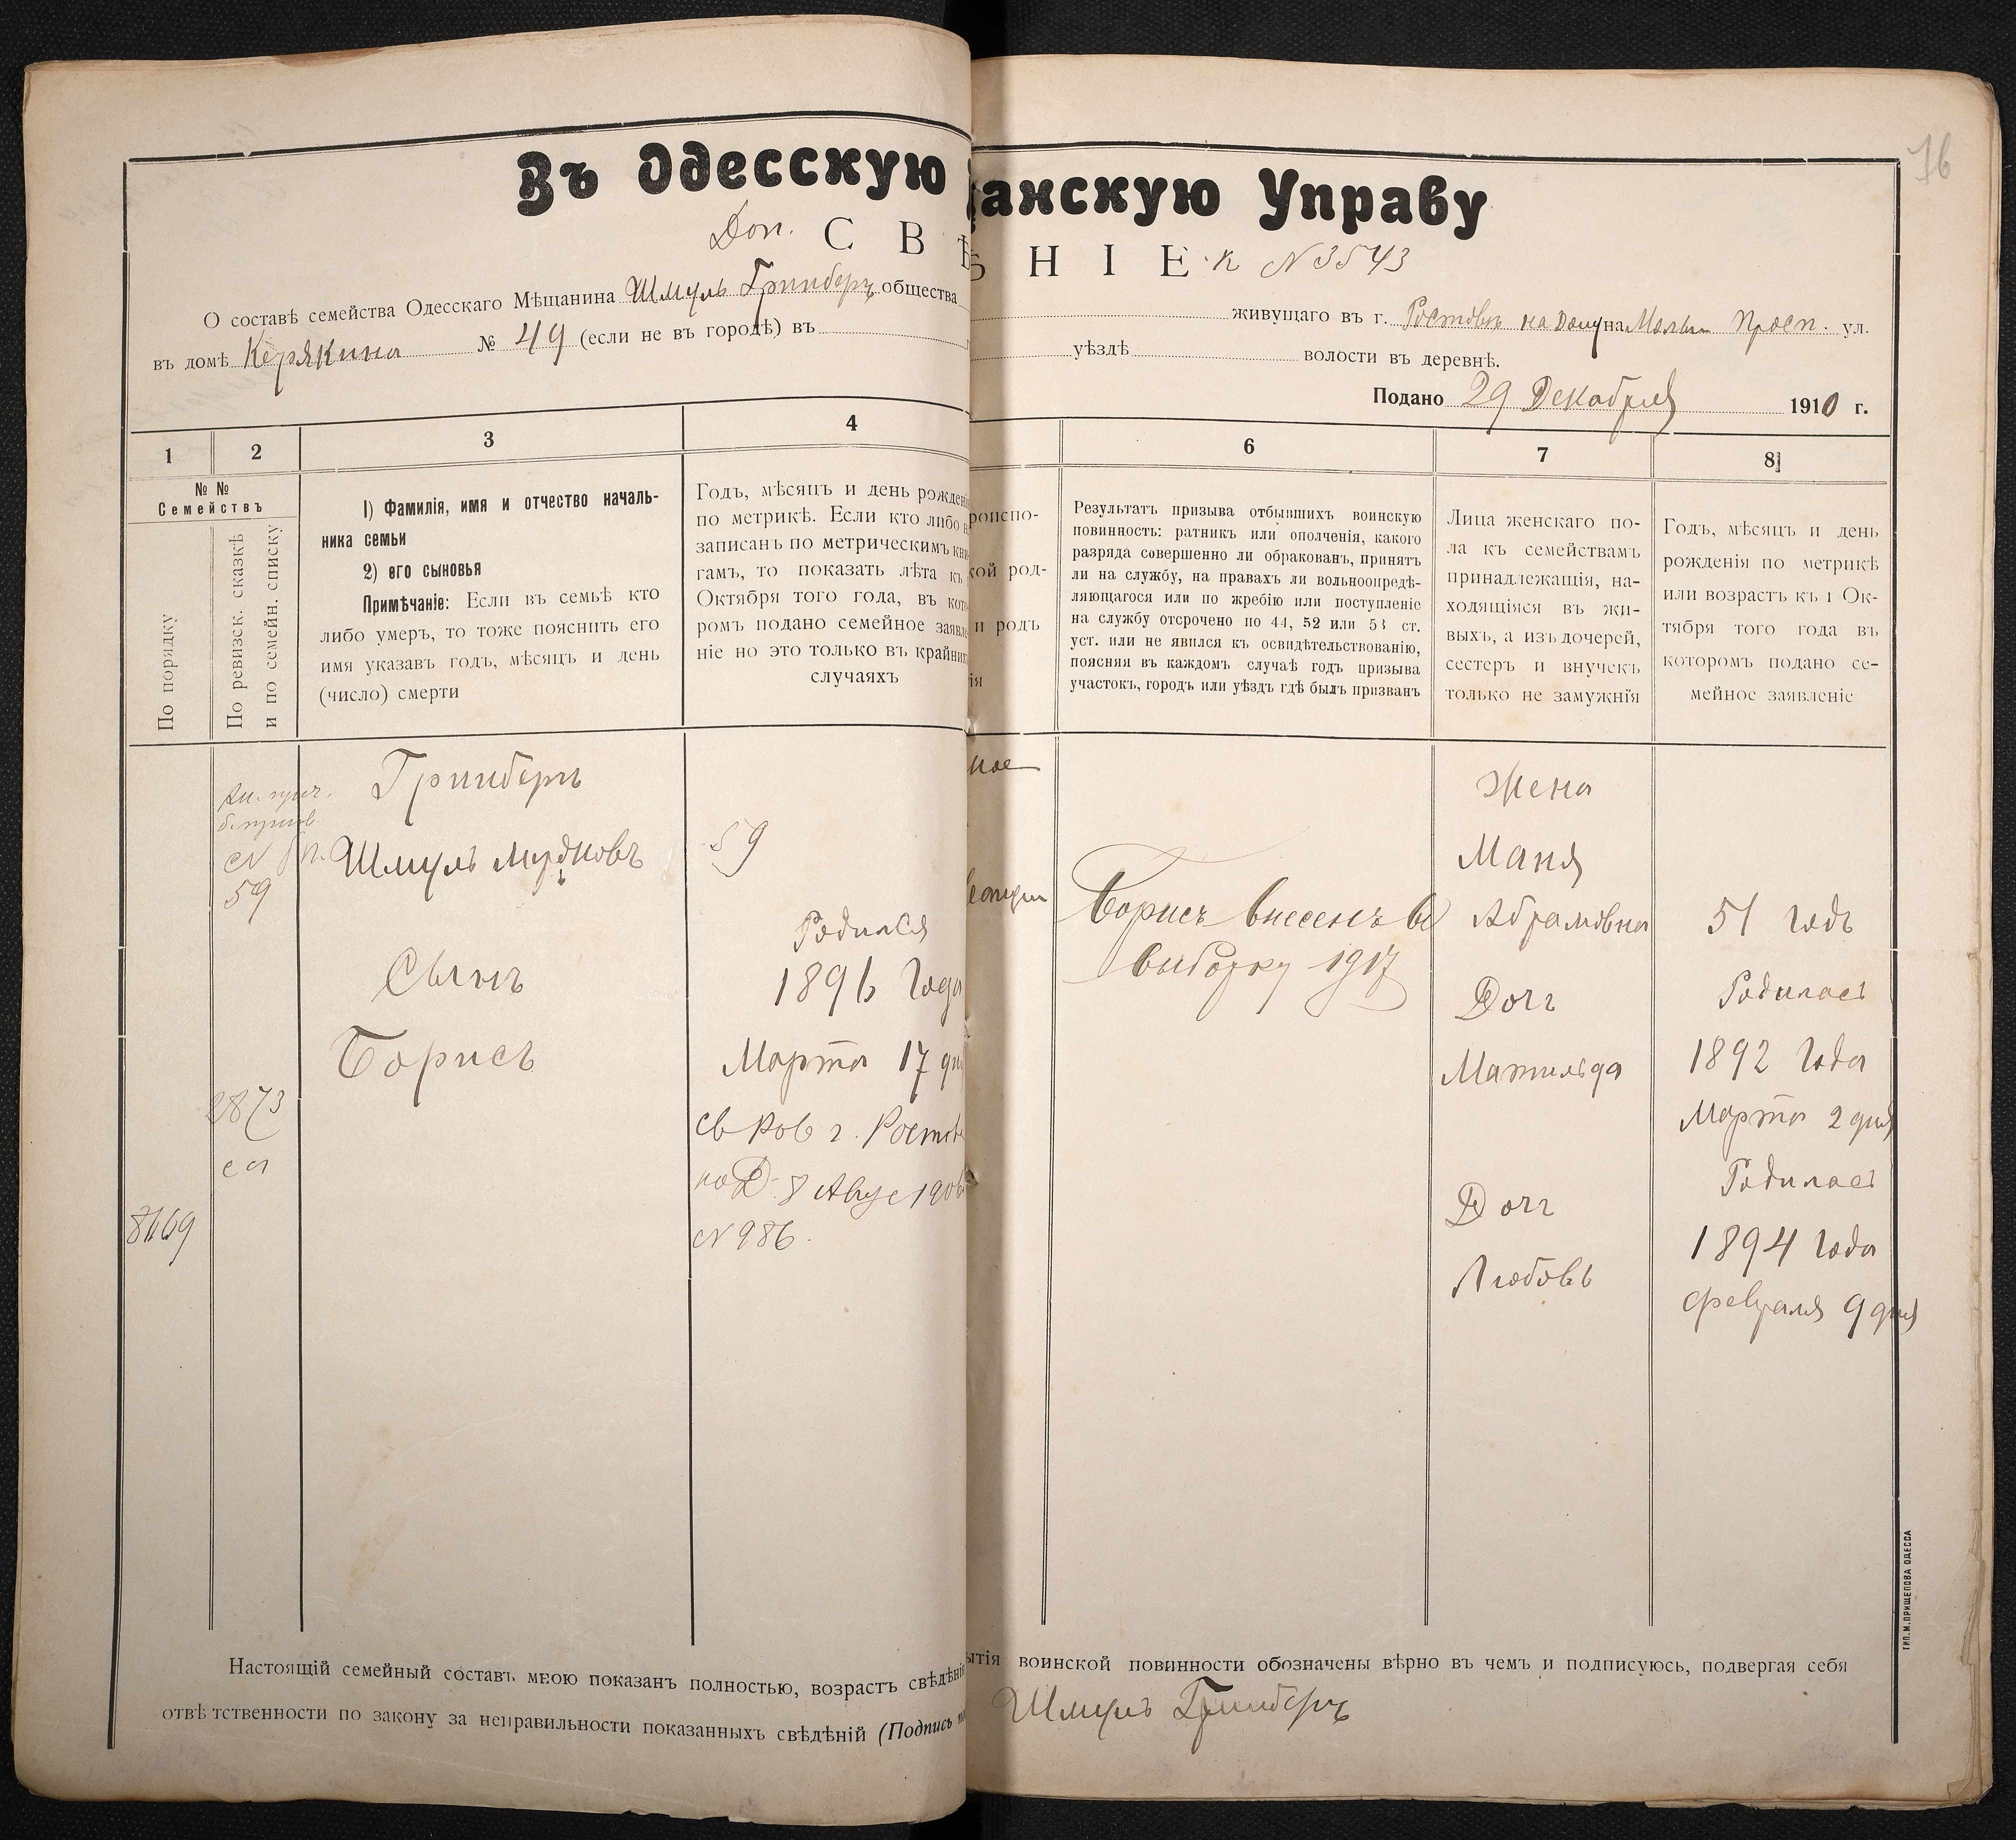 76
Въ Одесскую
анскую Управу
Доп. СВѢ
НІЕ к N 3543
О составѣ семейства Одесскаго Мѣщанина Шмуль Гринберъ общества
живущаго въ г. Ростовъ на Дону на Малый Просп. ул.
въ домѣ Керякина № 49 (если не въ городѣ) въ
уѣздѣ волости въ деревнѣ.
Подано 29 Декабря 1910 г.
1
2
3
4
6
7
8
№ №
Семействъ
По порядку
По ревизск. сказкѣ
и по семейн. списку
1) Фамилія, имя и отчество началь-
ника семьи
2) его сыновья
Примѣчаніе: Если въ семьѣ кто
либо умеръ, то тоже пояснить его
имя указавъ годъ, мѣсяцъ и день
(число) смерти
Годъ, мѣсяцъ и день рожденi
по метрикѣ. Если кто либо н
записанъ по метрическимъ кни
гамъ, то показать лѣта къ
Октября того года, въ кото
ромъ подано семейное заявле
ніе но это только въ крайних
случаяхъ
роиспо-
кой род-
и родъ
ія
Результатъ призыва отбывшихъ воинскую
повинность: ратникъ или ополченія, какого
разряда совершенно ли обракованъ, принятъ
ли на службу, на правахъ ли вольноопредѣ-
ляющагося или по жребію или поступленіе
на службу отсрочено по 44, 52 или 53 ст.
уст. или не явился къ освидѣтельствованію,
поясняя въ каждомъ случаѣ годъ призыва
участокъ, городъ или уѣздъ гдѣ былъ призванъ
Лица женскаго по-
ла къ семействамъ
принадлежащія, на-
ходящіяся въ жи-
выхъ, а изъ дочерей,
сестеръ и внучекъ
только не замужнія
Годъ, мѣсяцъ и день
рожденія по метрикѣ
или возрастъ къ 1 Ок-
тября того года въ
которомъ подано се-
мейное заявленіе
Гринберъ
Шмуль Мордковъ
N
59
59
Сынъ
Борисъ
Родился
1896 года
Марта 17 дня
св Ков г. Ростов
на Д. 8 Авгус 1906
N 986.
2873
са
8169
ное
Борисъ внесенъ в
выборку 1917
Жена
Маня
Абрамовна
51 годъ
Дочь
Матильда
Родилась
1892 года
Марта 2 дня
Дочь
Любовь
Родилась
1894 года
февраля 9 дня
Настоящій семейный составъ мною показанъ полностью, возрастъ свѣдѣні
ытія воинской повинности обозначены вѣрно въ чемъ и подписуюсь, подвергая себя
отвѣтственности по закону за неправильности показанныхъ свѣдѣній (Подпись
Шмуль Гринберъ
ТИП. М. ПРИЩЕПОВА ОДЕССА